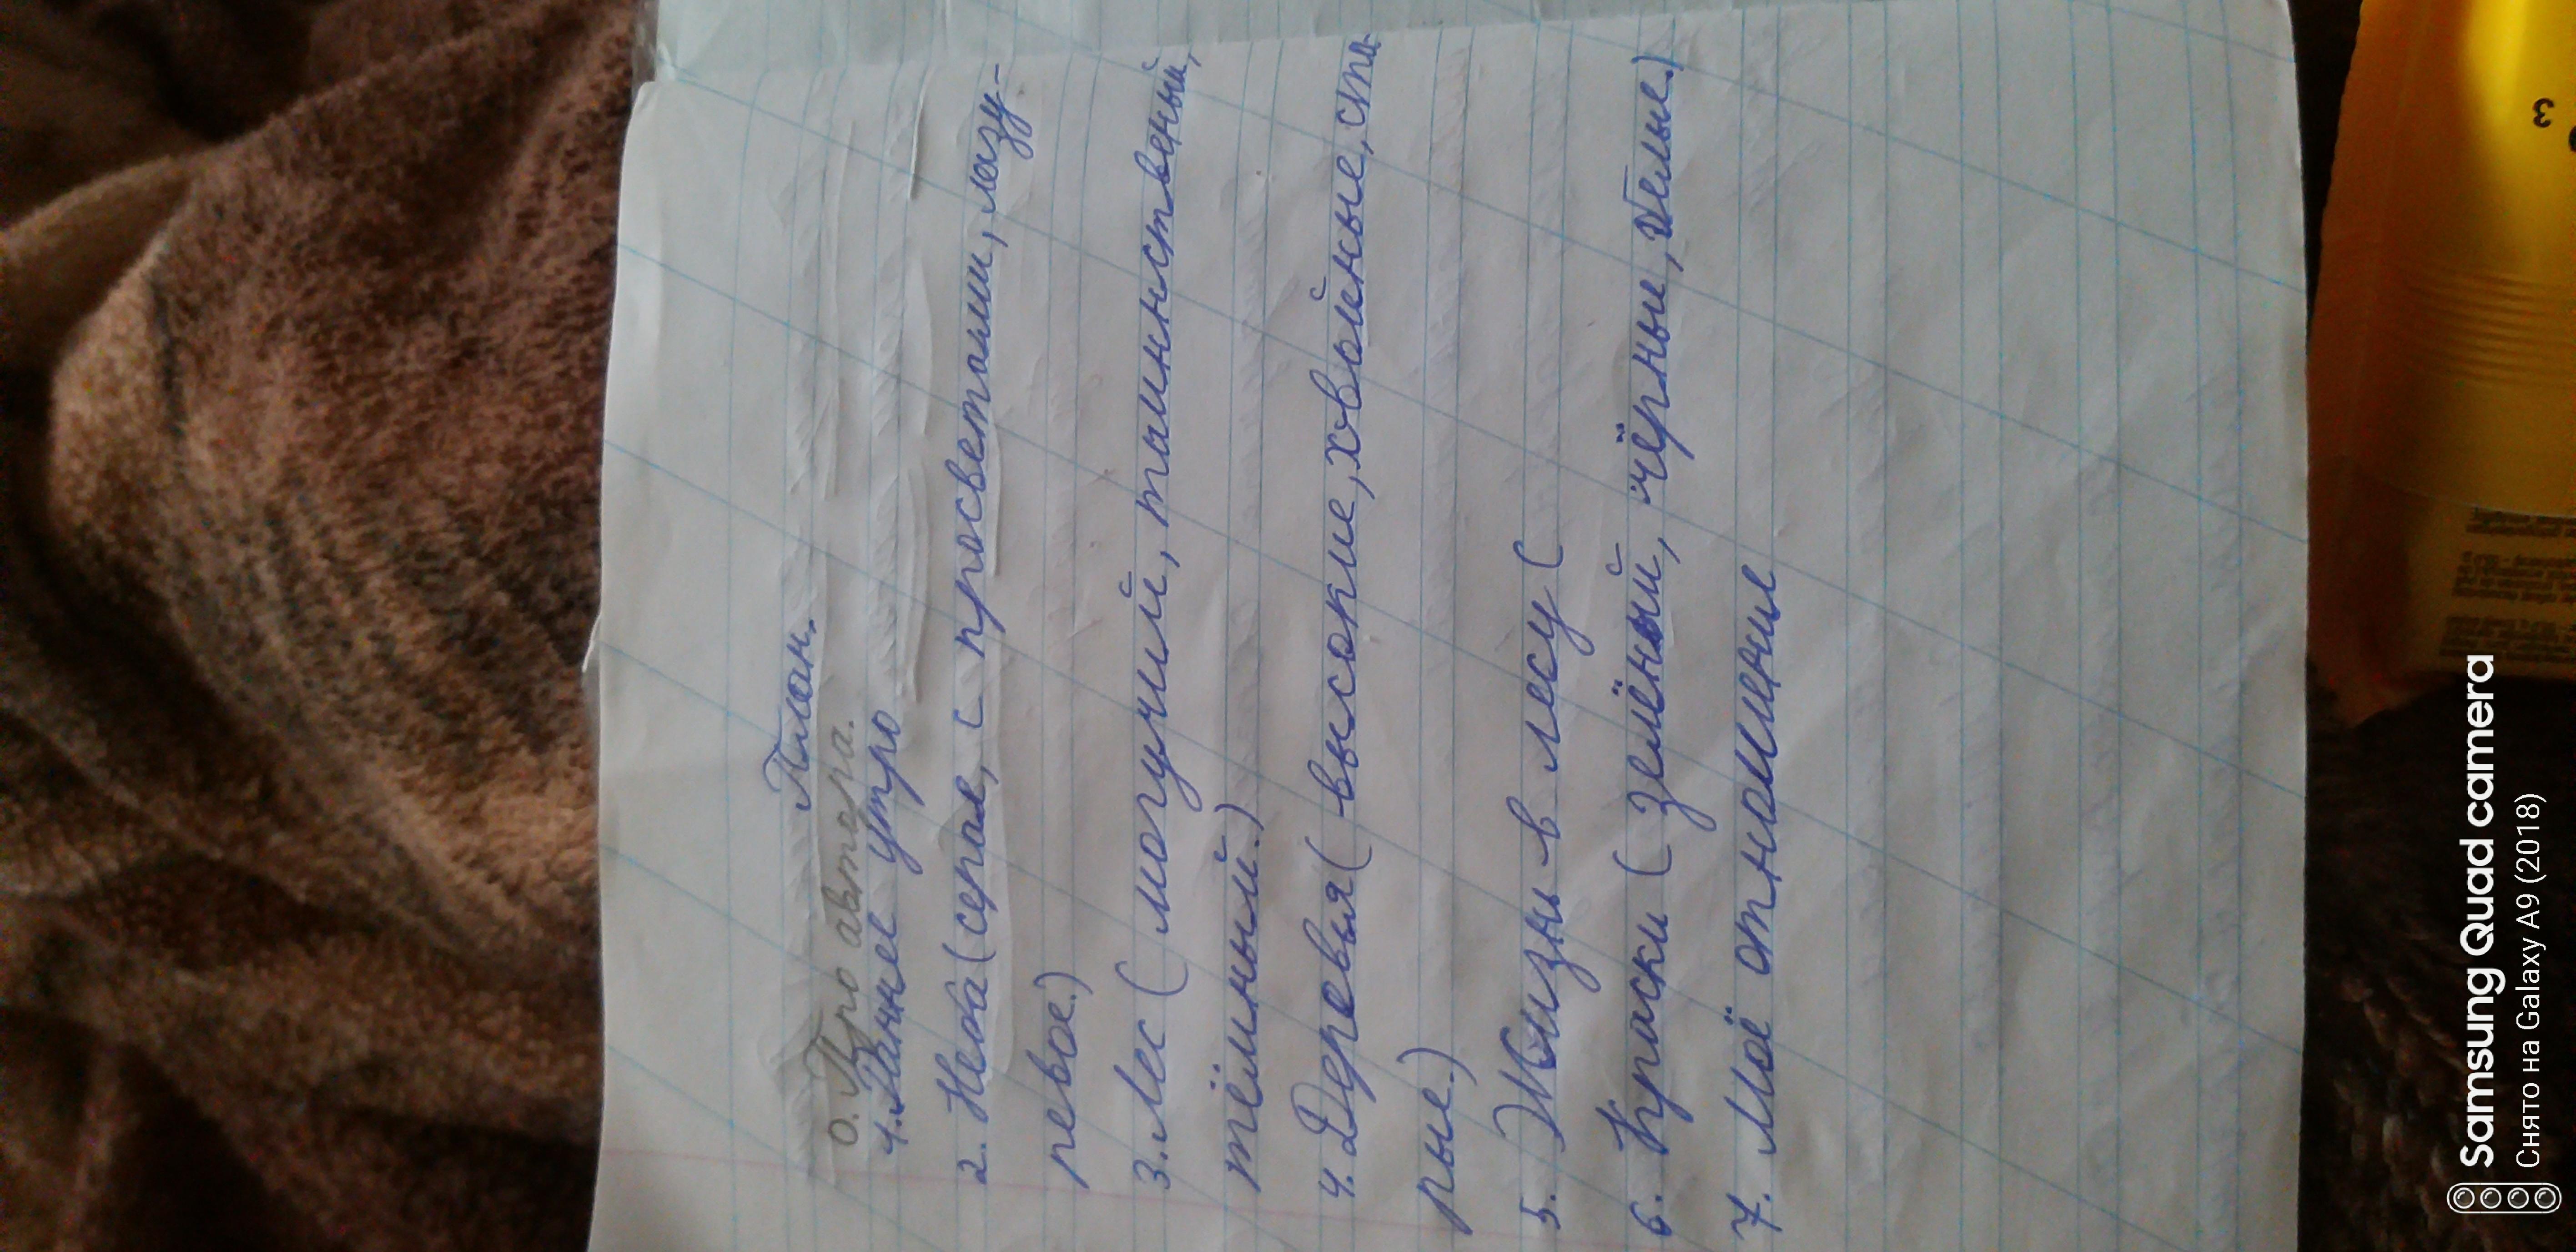 План.
0. Про автора.
1. Раннее утро
2. Небо (серое, с просветами, лазу-
ревое.)
3. Лес ( могучий, таиннственый,
тёмный.)
4. Деревья ( высокие, хвойные, ста-
рые.)
5. Жизнь в лесу (
6. Краски ( зелёный, чёрные, белые.)
7. Моё отношение
Samsung Quad camera
Снято на Galaxy A9 (2018)
3